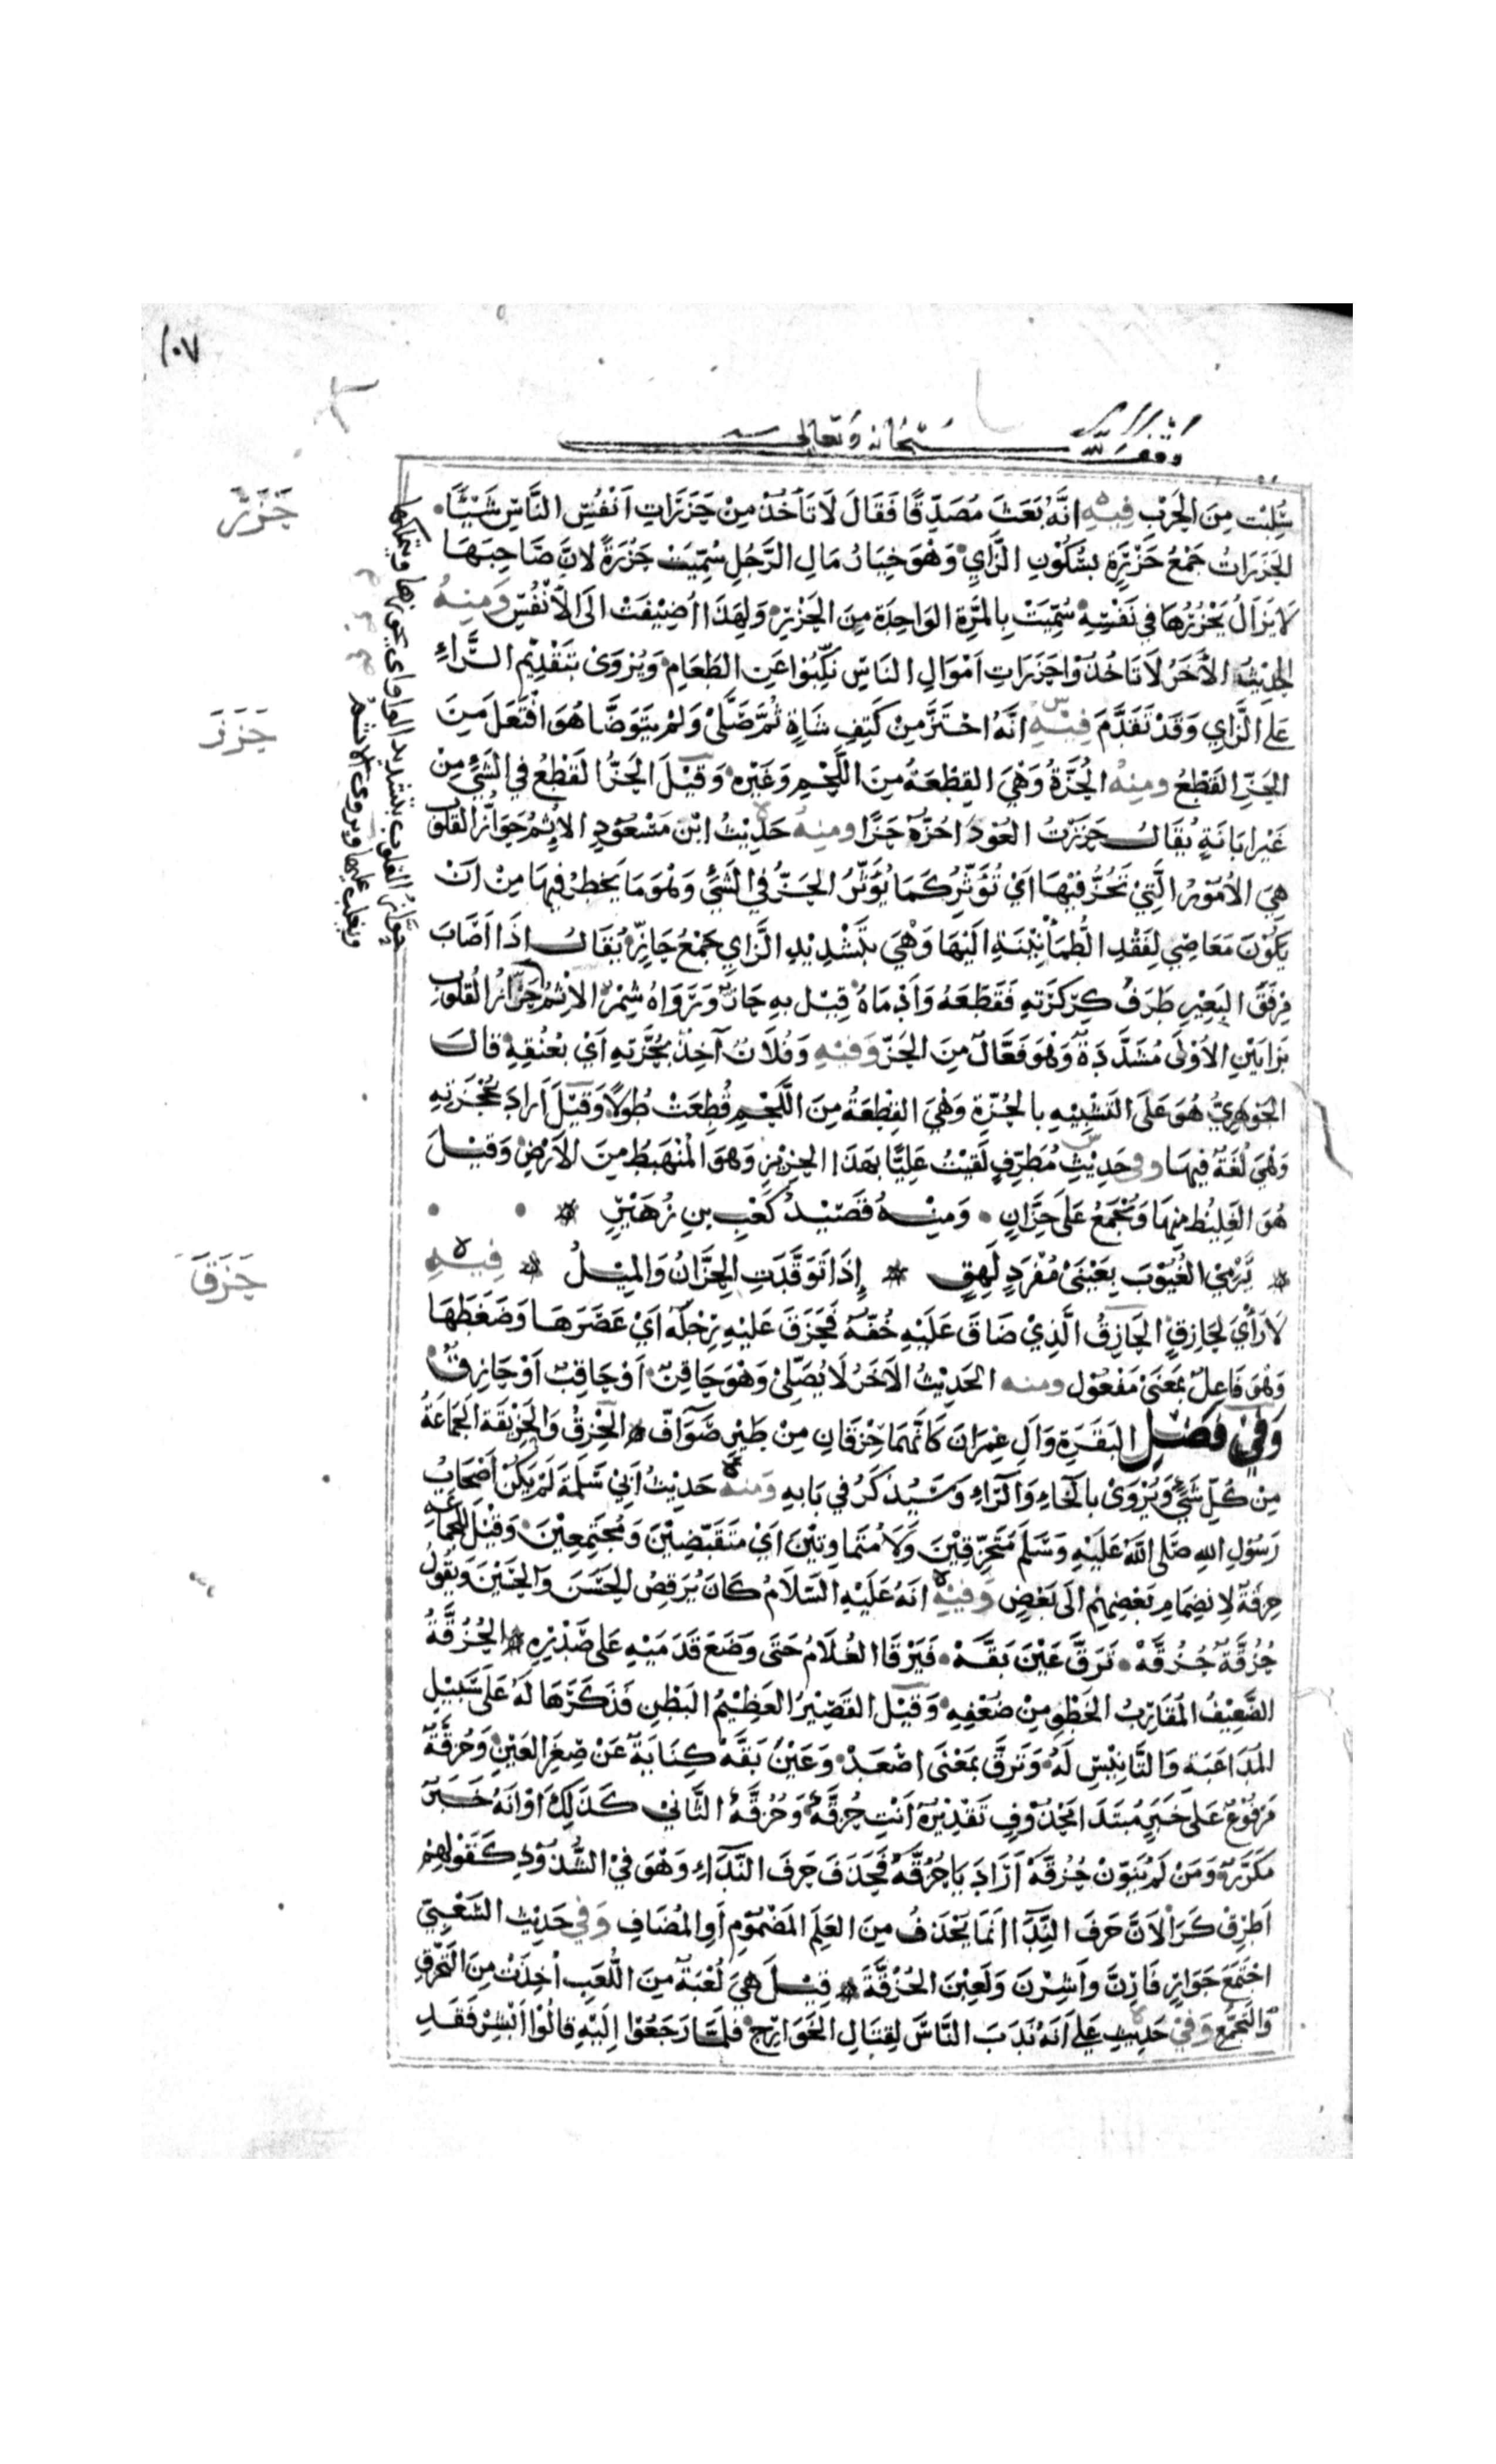 ١٠٧
وقف لله سبحانه وتعالى
سُلِبْت مِنَ الحَرْبِ فِيهِ اَنَّهُ بَعَثَ مُصَدِّقًا فَقَالَ لَا تَأخُذْ مِنْ حَزَرَاتِ اَنْفُسِ النَّاسِ شَيْئًا
حَزَرَ
الحَزَرَاتُ جَمْعُ حَزْرَةٍ بِسُكُوْنِ الزَّايِ وَهْوَ خِيَارُ مَالِ الرَّجُلِ سُمِّيَتْ حَزْرَةً لِانَّ صَاحِبَهَا
لَا يَزَالُ يَحْزُرُهَا فِي نَفْسِهِ سُمِّيَتْ بِالمَرَّةِ الوَاحِدَةِ مِنَ الحَزْرِ وَلِهَذَا اُضِيْفَتْ اِلَى الاَنْفُسِ وَمِنهُ
الحَدِيْثُ الاَخَرُ لَا تَاخُذُوْا حَزَرَاتِ اَمْوَالِ النَاسِ نَكِّبُوْا عَنِ الطَعَامِ وَيُرْوَى بِتَقْدِيْمِ الرَّاءِ
عَلى الزَّايِ وَقَدْ تَقَدَّمَ فِيْهِ اَنَّهُ احْتَزَّ مِنْ كَتِفِ شَاةٍ ثُمَّ صَلَّىْ وَلمْ يَتَوَضَّا هُوَ افْتَعَلَ مِنَ
حَزَزَ
الحَزِّ القَطْعُ ومِنهُ الحُزَّةُ وَهْيَ القِطْعَةُ مِنَ اللَّحْمِ وَغَيْرِهِ وَقِيْلَ الحَزُّ القَطْعُ فِي الشَيْءِ مِنْ
غَيْرِ اِبَانَةٍ يُقَالُ حَزَزْتُ العُوْدَ اَحُزُّهُ حَزًّا ومِنهُ حَدِيْثُ ابْنِ مَسْعُوْدٍ الاِثْمُ حَوَازُّ القُلُوْبِ
هِيَ الاُمُوْرُ الَّتِيْ تَحُزُّ فِيْهَا اَيْ تُؤَثِّرُ كَمَا يُؤَثِّرُ الحَزُّ فِي الشَيْءِ وَهْوَ مَا يَخْطُرُ فِيهَا مِنْ اَنْ
يَكُوْنَ مَعَاصِيَ لِفَقْدِ الطُّمَأْنِيْنَةِ اِلَيْهَا وَهْيَ بِتَشْدِيْدِ الزَّايِ جَمْعُ حَازٍّ يُقَالُ اِذَا اَصَابَ
مِرْفَقُ البَعِيْرِ طَرَفَ كِرْكِرَتِهِ فَقَطَعَهُ وَاَدْمَاهُ قِيْلَ بِهِ حَازٌّ وَرَوَاهُ شِمْرٌ الاِثْمُ حَزَّازُ القُلُوْبِ
بِزَايَيْنِ الاُوْلَى مُشَدَّدَةٌ وَهْوَ فَعَّالٌ مِنَ الحَزِّ وَفِيْهِ وَفُلَانٌ آخِذٌ بِحُزَّتِهِ اَيْ بِعُنُقِهِ قَالَ
الجَوْهَرِيُّ هُوَ عَلَى التَشْبِيْهِ بِالحُزَّةِ وَهْيَ القِطْعَةُ مِنَ اللَّحْمِ قُطِعَتْ طُوْلًا وَقِيْلَ اَرَادَ بِحُجْزَتِهِ
وَهْيَ لُغَةٌ فِيْهَا وفي حَدِيْثِ مُطَرِّفٍ لَقِيْتُ عَلِيًّا بِهَذَا الحَزِيْزِ وَهُوَ المُنْهَبِطُ مِنَ الاَرْضِ وَقِيْلَ
هُوَ الغَلِيْظُ مِنهَا وَيُجْمَعُ عَلَى حِزَّانٍ وَمِنْهُ قَصِيْدُ كَعْبِ بنِ زُهَيْرٍ
تَرْمِيْ الغُيُوْبَ بِعَيْنَيْ مُفْرَدٍ لَهِقٍ * اِذَا تَوَقَّدَتِ الحِزَّانُ وَالمِيْلُ * فِيْهِ
حَزَقَ
لَا رَأْيَ لِحَازِقٍ الحَازِقُ الَّذِيْ ضَاقَ عَلَيْهِ خُفّهُ فَحَزَقَ عَلَيْهِ رِجْلَهُ اَيْ عَصَرَهَا وَضَغَطَهَا
وَهْوَ فَاعِلٌ بِمَعْنَى مَفْعُوْلٍ ومنه الحَدِيْثُ الاَخَرُ لَا يُصَلِّيْ وَهْوَ حَاقِنٌ اَوْ حَاقِبٌ اَوْ حَازِقٌ
وَفِيْ فَضْلِ البَقَرَةِ وَآلِ عِمْرَانَ كَاَنَّهُمَا حِزْقَانِ مِنْ طَيْرٍ صَوَافَّ * الحِزْقُ وَالحَزِيْقَةُ الجَمَاعَةُ
مِنْ كُلِّ شَيْءٍ وَيُرْوَىْ بِالخَاءِ وَالرَّاءِ وَسَيُذكَرُ فِي بَابِهِ وَمنهُ حَدِيْثُ اَبِيْ سَلَمَةَ لَمْ يَكُنْ اَصْحَابُ
رَسُوْلِ اللهِ صَلى اللهُ عَلَيْهِ وَسَلَّمَ مُتَحَزِّقِيْنَ وَلَا مُتَمَاوِتِيْنَ اَيْ مُتَقَبِّضِيْنَ وَمُجْتَمِعِيْنَ وَقِيْلَ للجَمَاعَةِ
حِزقَةٌ لِانضِمَامِ بَعْضِهِمْ اِلَى بَعْضٍ وَفِيْهِ اَنَهُ عَلَيْهِ السَلَامُ كَانَ يُرَقِّصُ الحَسَنَ وَالحُسَيْنَ وَيَقُوْلُ
حُزُقَّةٌ حُزُقَّهْ تَرَقَّ عَيْنَ بَقَّهْ فَيَرْقَا الغُلَامُ حَتَى وَضَعَ قَدَمَيْهِ عَلى صَدْرِهِ * الحُزُقَّةُ
الضَّعِيْفُ المُقَارِبُ الخَطْوِ مِنْ ضُعْفِهِ وَقِيْلَ القَصِيْرُ العَظِيْمُ البَطْنِ فَذَكَرَهَا لَهُ عَلَى سَبِيْلِ
المُدَاعَبَةِ وَالتَّانِيْسِ لَهُ وَتَرَقَّ بِمَعْنَى اصْعَدْ وَعَيْنُ بَقَّهْ كِنَايَةٌ عَنْ صِغَرِ العَيْنِ وَحُزُقَّةٌ
مَرْفُوْعٌ عَلَى خَبَرِ مُبْتَدَا مَحْذُوْفٍ تَقْدِيْرُهُ اَنْتَ حُزُقَّةٌ وَحُزُقَّةٌ الثَّانِيْ كَذَلِكَ اَوْ اَنَّهُ خَبَرٌ
مُكَرَّرٌ وَمَنْ لَمْ يُنَوِّنْ حُزُقَّةُ اَرَادَ يَا حُزُقَّةُ فَحَذَفَ حَرفَ النِّدَاءِ وَهْوَ فِيْ الشُّذُوْذِ كَقَوْلِهِمْ
اَطْرِقْ كَرَا لِاَنَّ حَرفَ النِّدَا اِنَمَا يُحْذَفُ مِنَ العَلَمِ المَضْمُوْمِ اَوِ المُضَافِ وَفِي حَدِيْثِ الشَعْبِيِّ
اجْتَمَعَ جَوَارٍ فَاَرِنَّ وَاَشِرْنَ وَلَعِبْنَ الحُزُقَّةَ * قِيْلَ هِيَ لُعْبَةٌ مِنَ اللُّعَبِ اُخِذَتْ مِنَ التَحَزُّقِ
وَالتَجَمُّعِ وَفِيْ حَدِيْثِ عَلي اَنَهُ نَدَبَ النَّاسَ لِقِتَالِ الخَوَارِجِ فَلَمَّا رَجَعُوْا اِلَيْهِ قَالُوْا اَبْشِرْ فَقَدِ
حوَّازُ القلوب بتشديد الواو اي يحوزها ويتملكها
ويغلب عليها ويروى الاثم